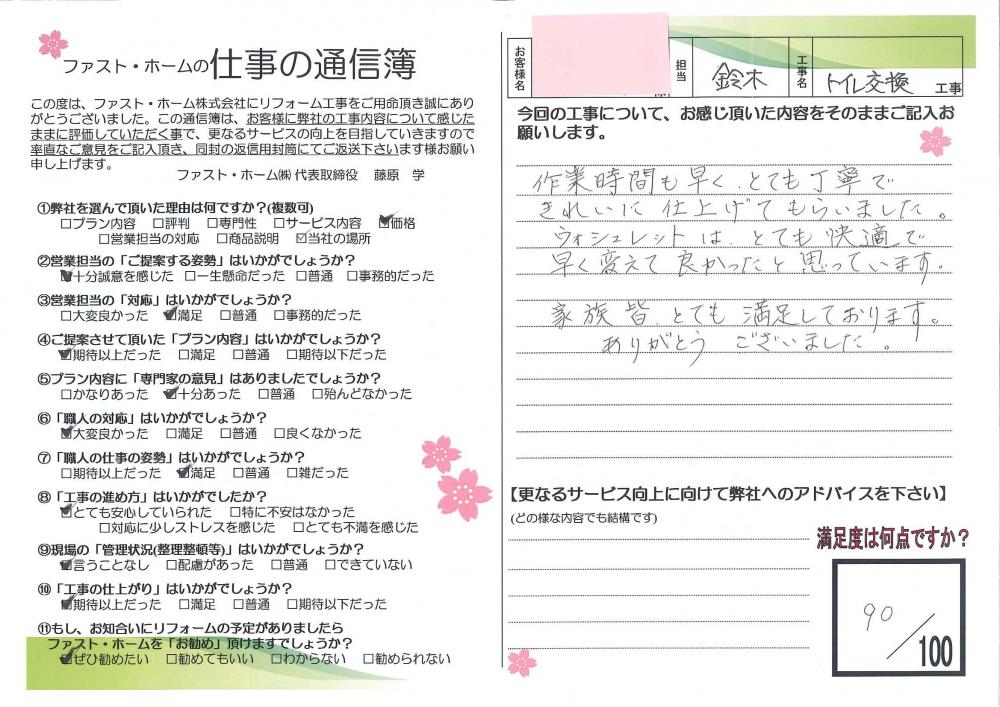 ファスト・ホームの仕事の通信簿
この度は、ファスト・ホーム株式会社にリフォーム工事をご用命頂き誠にあり
がとうございました。この通信簿は、お客様に弊社の工事内容について感じた
ままに評価していただく事で、更なるサービスの向上を目指していきますので
率直なご意見をご記入頂き、同封の返信用封筒にてご返送下さいます様お願い
申し上げます。
ファスト・ホーム㈱ 代表取締役 藤原 学
①弊社を選んで頂いた理由は何ですか?(複数可)
□プラン内容 □評判 □専門性 □サービス内容 ☑価格
□営業担当の対応 □商品説明 ☑当社の場所
②営業担当の「ご提案する姿勢」はいかがでしょうか?
☑十分誠意を感じた □一生懸命だった □普通 □事務的だった
③営業担当の「対応」はいかがでしょうか?
□大変良かった ☑満足 □普通 □事務的だった
④ご提案させて頂いた「プラン内容」はいかがでしょうか?
☑期待以上だった □満足 □普通 □期待以下だった
⑤プラン内容に「専門家の意見」はありましたでしょうか?
□かなりあった ☑十分あった □普通 □殆んどなかった
⑥「職人の対応」はいかがでしょうか?
☑大変良かった □満足 □普通 □良くなかった
⑦「職人の仕事の姿勢」はいかがでしょうか?
□期待以上だった ☑満足 □普通 □雑だった
⑧「工事の進め方」はいかがでしたか?
☑とても安心していられた □特に不安はなかった
□対応に少しストレスを感じた □とても不満を感じた
⑨現場の「管理状況(整理整頓等)」はいかがでしょうか?
☑言うことなし □配慮があった □普通 □できていない
⑩「工事の仕上がり」はいかがでしょうか?
☑期待以上だった □満足 □普通 □期待以下だった
⑪もし、お知合いにリフォームの予定がありましたら
ファスト・ホームを「お勧め」頂けますでしょうか?
☑ぜひ勧めたい □勧めてもいい □わからない □勧められない
お客様名 担当 鈴木 工事名 トイレ交換 工事
今回の工事について、お感じ頂いた内容をそのままご記入お
願いします。
作業時間も早く、とても丁寧で
きれいに仕上げてもらいました。
ウォシュレットは、とても快適で
早く変えて良かったと思っています。
家族皆とても満足しております。
ありがとうございました。
【更なるサービス向上に向けて弊社へのアドバイスを下さい】
(どの様な内容でも結構です)
満足度は何点ですか?
90/100